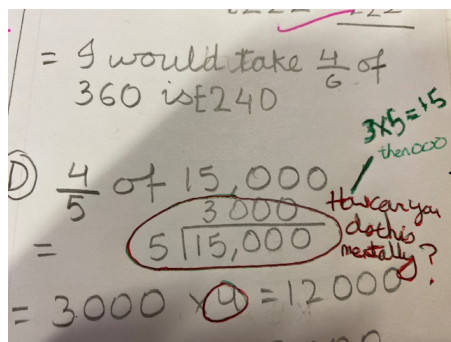 = I would take 4/6 of
360 is £240
3×5=15
then 000
D) 4/5 of 15,000
3000
= 5 15,000
How can you
do this
mentally?
= 3000 × 4 = 12000